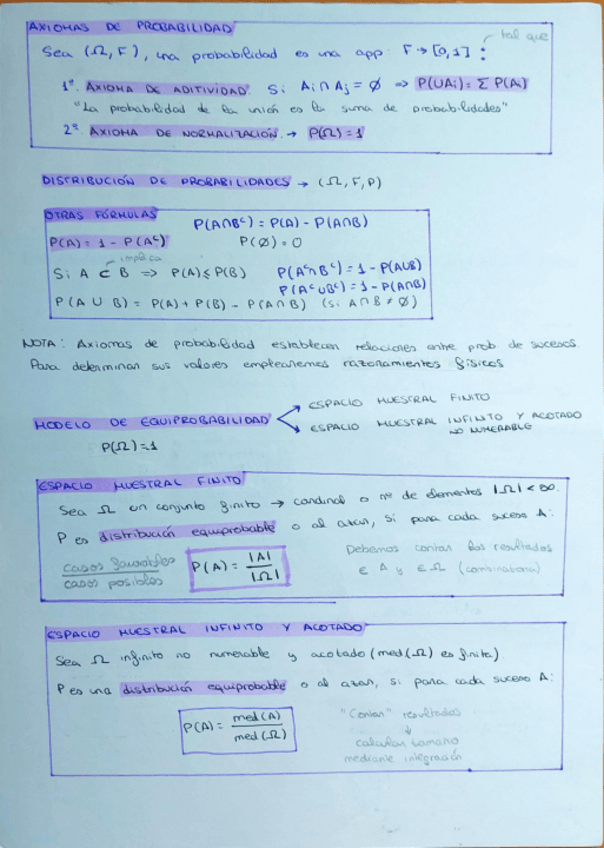 AXIOMAS DE PROBABILIDAD
Sea (Ω, F), una probabilidad es una app. F → [0,1] tal que :
1º. AXIOMA DE ADITIVIDAD Si Ai ∩ Aj = Ø ⇒ P(UAi) = Σ P(Ai)
"La probabilidad de la unión es la suma de probabilidades"
2º AXIOMA DE NORMALIZACIÓN. → P(Ω) = 1
DISTRIBUCIÓN DE PROBABILIDADES → (Ω, F, P)
OTRAS FÓRMULAS
P(A∩Bᶜ) = P(A) - P(A∩B)
P(A) = 1 - P(Aᶜ)
P(Ø) = 0
implica
Si A ⊂ B ⇒ P(A) ≤ P(B)
P(Aᶜ∩Bᶜ) = 1 - P(A∪B)
P(Aᶜ∪Bᶜ) = 1 - P(A∩B)
P(A ∪ B) = P(A) + P(B) - P(A∩B) (si A∩B ≠ Ø)
NOTA : Axiomas de probabilidad establecen relaciones entre prob. de sucesos.
Para determinar sus valores emplearemos razonamientos físicos
MODELO DE EQUIPROBABILIDAD
ESPACIO MUESTRAL FINITO
ESPACIO MUESTRAL INFINITO Y ACOTADO
NO NUMERABLE
P(Ω) = 1
ESPACIO MUESTRAL FINITO
Sea Ω un conjunto finito → cardinal o nº de elementos |Ω| < ∞.
P es distribución equiprobable o al azar, si para cada suceso A:
casos favorables
casos posibles
P(A) = |A| / |Ω|
Debemos contar los resultados
∈ A y ∈ Ω (combinatoria)
ESPACIO MUESTRAL INFINITO Y ACOTADO
Sea Ω infinito no numerable y acotado (med(Ω) es finita).
P es una distribución equiprobable o al azar, si para cada suceso A:
P(A) = med(A) / med(Ω)
"Contar" resultados
↓
calcular tamaño
mediante integración